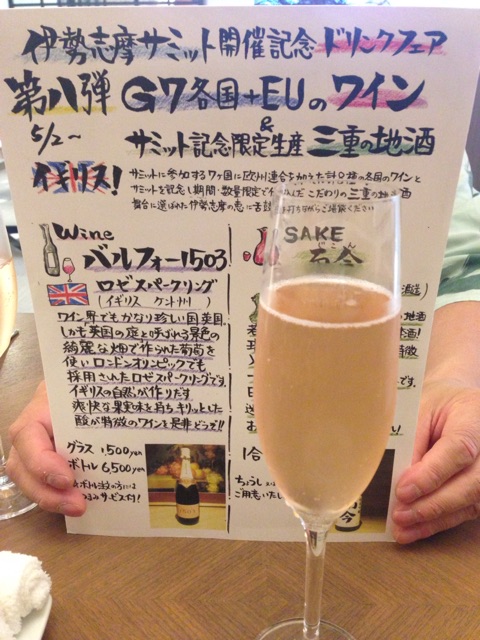 伊勢志摩サミット開催記念ドリンクフェア
第八弾 G7各国+EUのワイン
5/2〜 & サミット記念限定生産 三重の地酒
イギリス!
サミットに参加する7ヶ国に欧州連合を加えた計8種の各国のワインと
サミットを記念し期間・数量限定で こだわりの三重の地酒
舞台に選ばれた伊勢志摩の恵に舌鼓 打ちながらご堪能ください
Wine
バルフォー1503
ロゼスパークリング
(イギリス ケント州)
ワイン界でもかなり珍しい国英国
しかも英国の庭と呼ばれる景色の
綺麗な畑で作られた葡萄を
使いロンドンオリンピックでも
採用されたロゼスパークリングです
イギリスの自然が作りだす
爽快な果実味を持ちキリッとした
酸が特徴のワインを是非どうぞ!!
グラス 1,500yen
ボトル 6,500yen
ボトル注文の方には
おつまみサービス付!
SAKE
而今
じこん
酒造)
の地酒
特徴
です。
1合
ちょうし
ご用意いたし